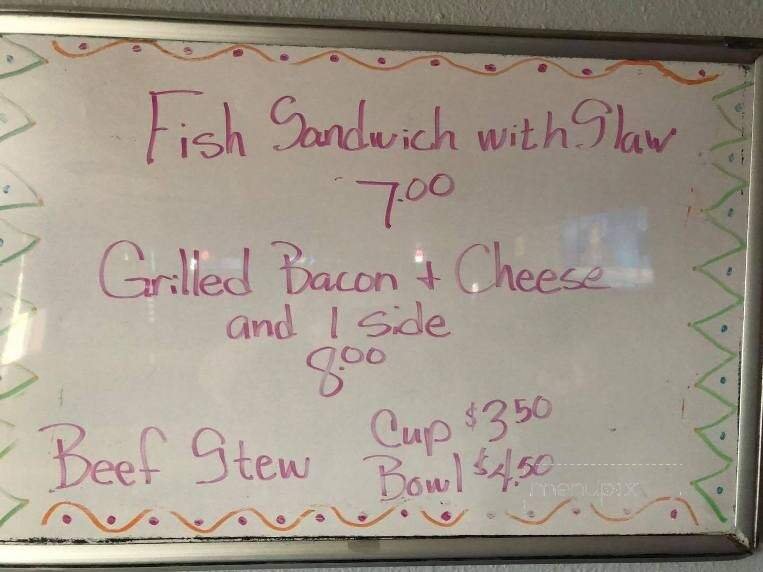 Fish Sandwich with Slaw
7.00
Grilled Bacon + Cheese
and 1 side
8.00
Cup $3.50
Beef Stew
Bowl $4.50
menupix